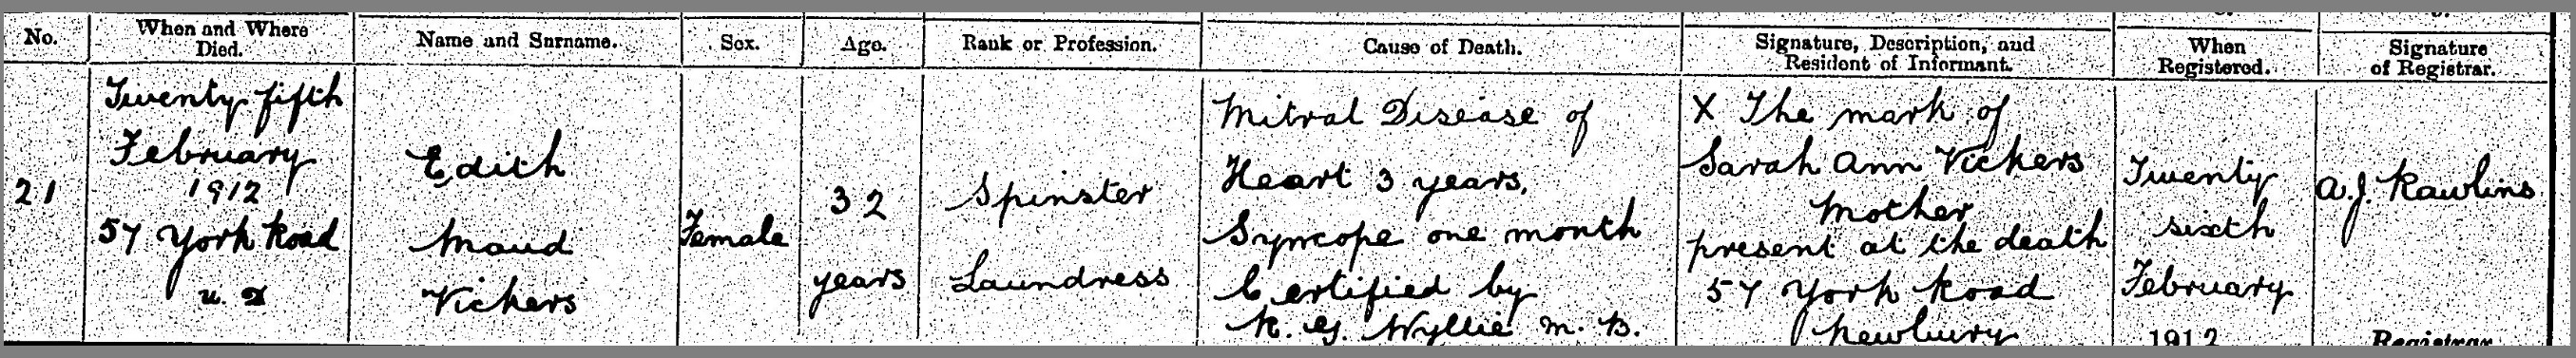 No.
When and Where
Died.
Name and Surname.
Sex.
Age.
Rank or Profession.
Cause of Death.
Signature, Description, and
Resident of Informant.
When
Registered.
Signature
of Registrar.
21
Twenty fifth
February
1912
57 York Road
u. D
Edith
Maud
Vickers
Female
32
years
Spinster
Laundress
Mitral Disease of
Heart 3 years,
Syncope one month
Certified by
R. G. Wyllie M. B.
X The mark of
Sarah Ann Vickers
Mother
present at the death
57 York Road
Newbury
Twenty
sixth
February
1912
A.J. Rawlins
Registrar